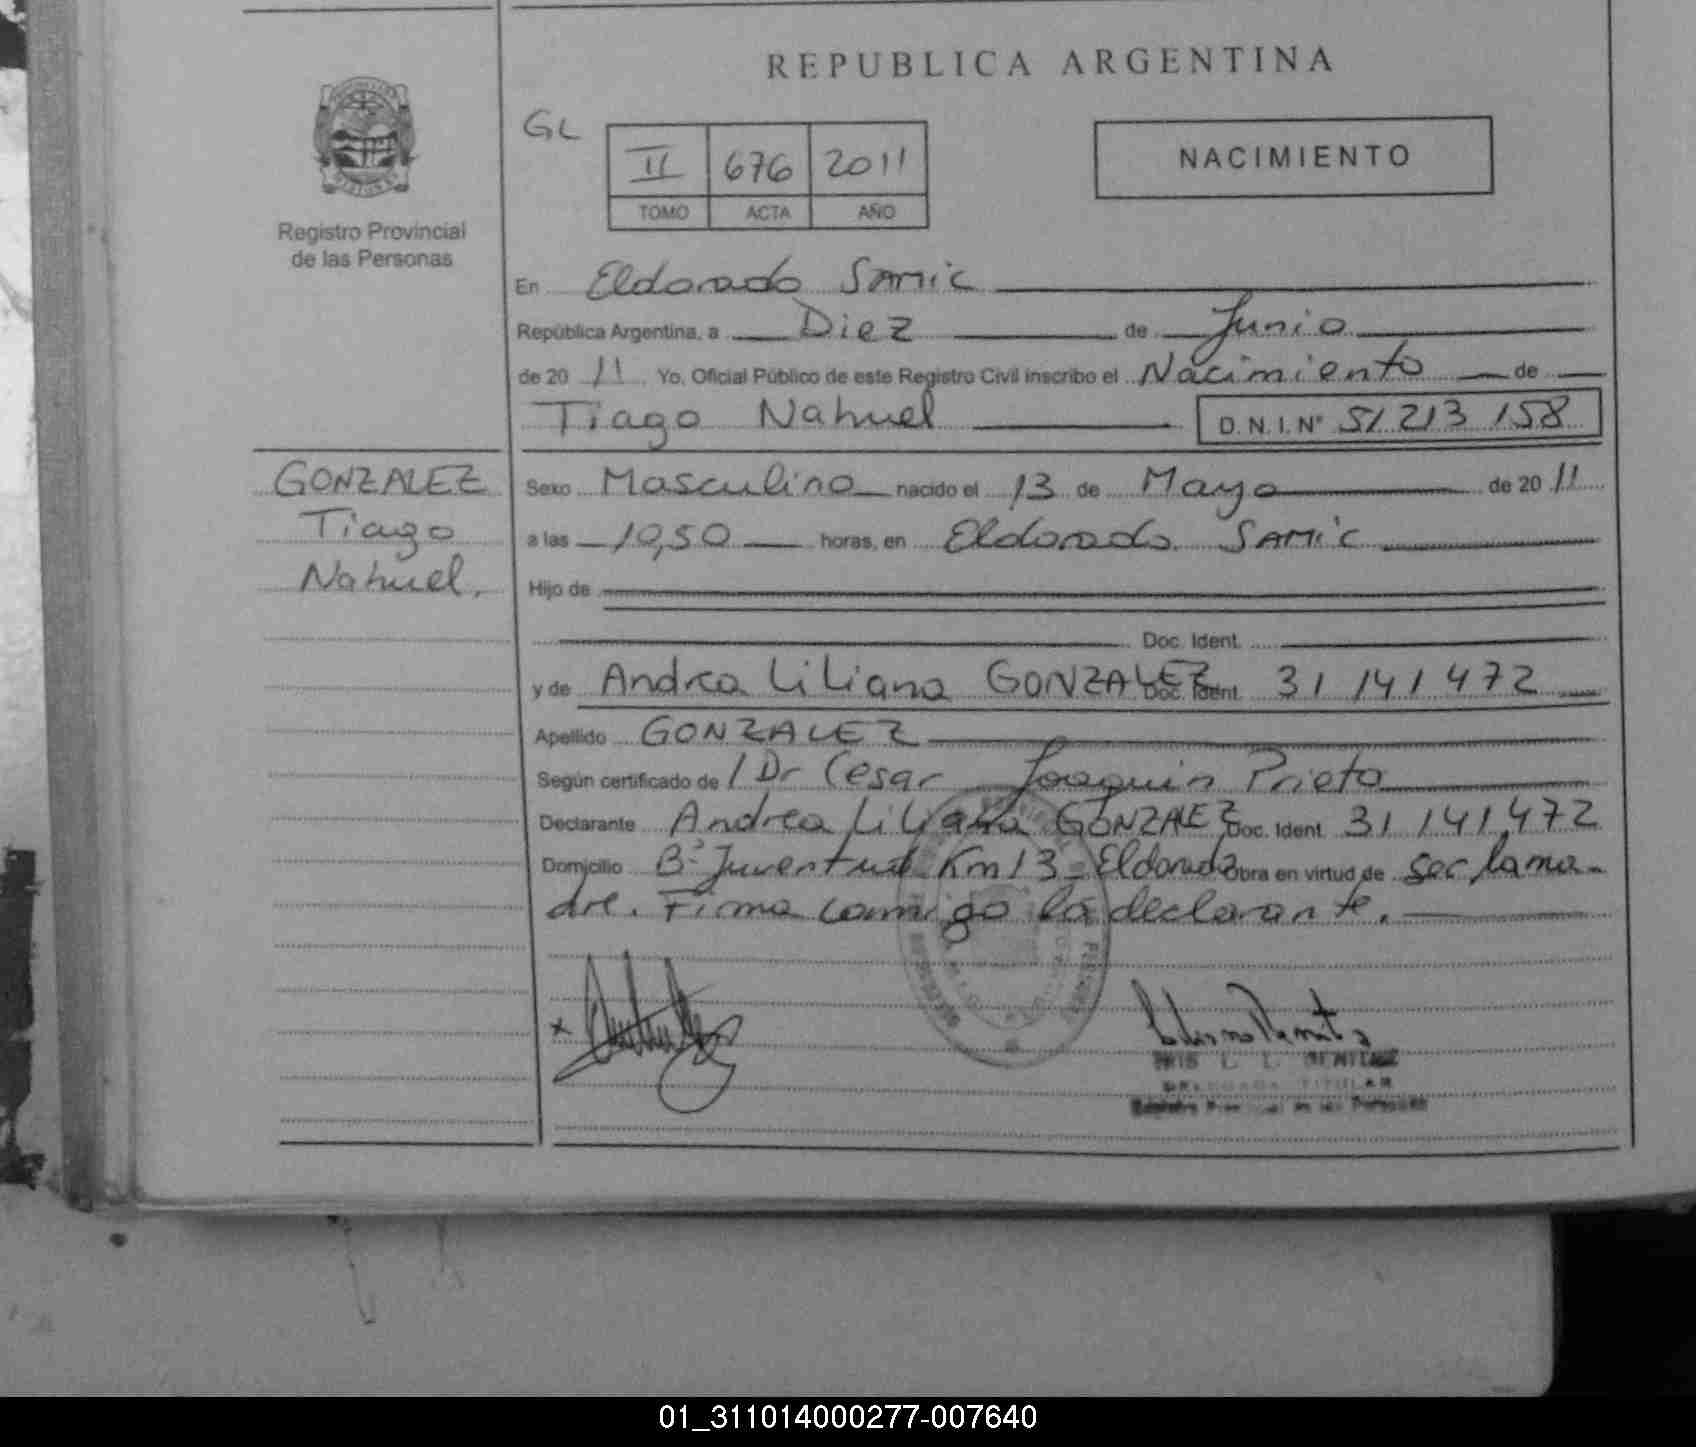 REPUBLICA ARGENTINA
GL
II 676 2011
TOMO ACTA AÑO
NACIMIENTO
Registro Provincial
de las Personas
En Eldorado SAMIC
República Argentina, a Diez de Junio
de 20 11. Yo, Oficial Público de este Registro Civil inscribo el Nacimiento de
Tiago Nahuel D.N.I.Nº 51 213 158
GONZALEZ
Tiago
Nahuel.
Sexo Masculino nacido el 13 de Mayo de 20 11
a las 10,50 horas, en Eldorado SAMIC
Hijo de
Doc. Ident.
y de Andrea Liliana GONZALEZ Doc. Ident. 31 141 472
Apellido GONZALEZ
Según certificado de / Dr Cesar Joaquin Prieto
Declarante Andrea Liliana GONZALEZ Doc. Ident. 31 141,472
Domicilio Bº Juventud Km 13 - Eldorado Obra en virtud de ser la ma-
dre. Firma conmigo la declarante.
x
L. L. BENITEZ
DELEGADA TITULAR
Registro Provincial de las Personas
01_311014000277-007640